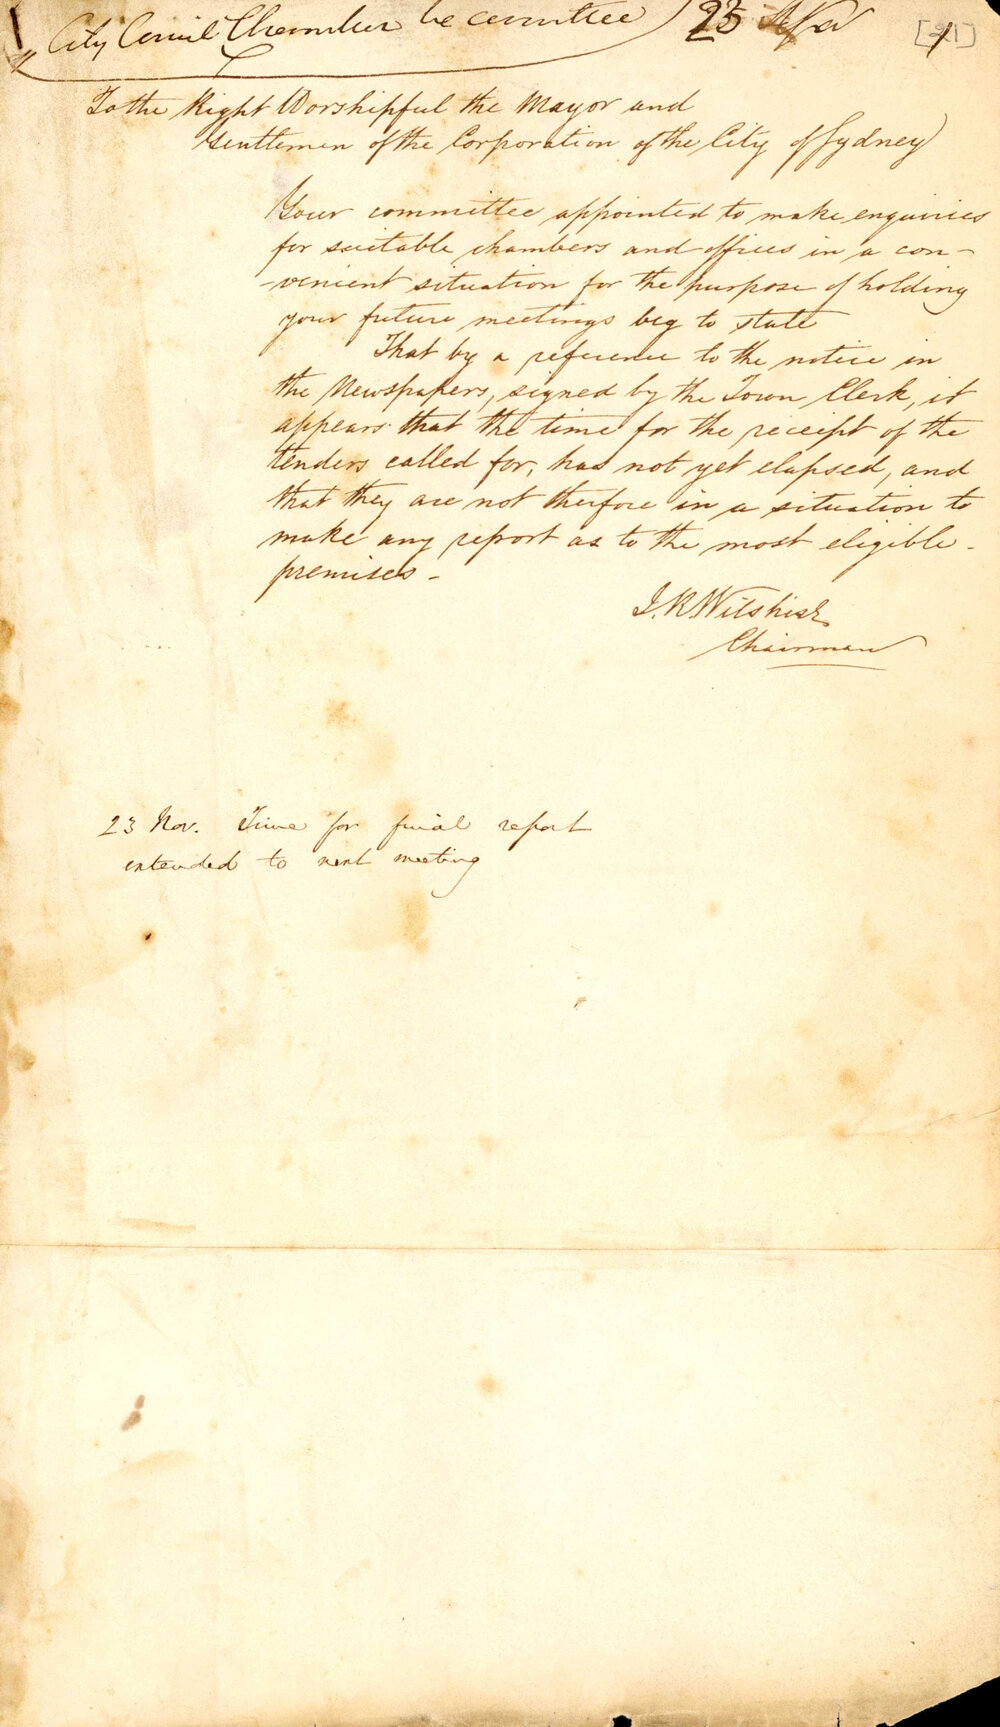 City Council Chamber committee 23 Nov [21] 1
To the Right Worshipful the Mayor and
Gentlemen of the Corporation of the City of Sydney
Your committee appointed to make enquiries
for suitable chambers and offices in a con-
-venient situation for the purpose of holding
your future meetings beg to state
That by a reference to the notice in
the Newspapers, signed by the Town Clerk, it
appears that the time for the receipt of the
tenders called for, has not yet elapsed, and
that they are not therfore in a situation to
make any report as to the most eligible -
premises -
J. R Wilshire
Chairman
23 Nov. Time for final report
extended to next meeting